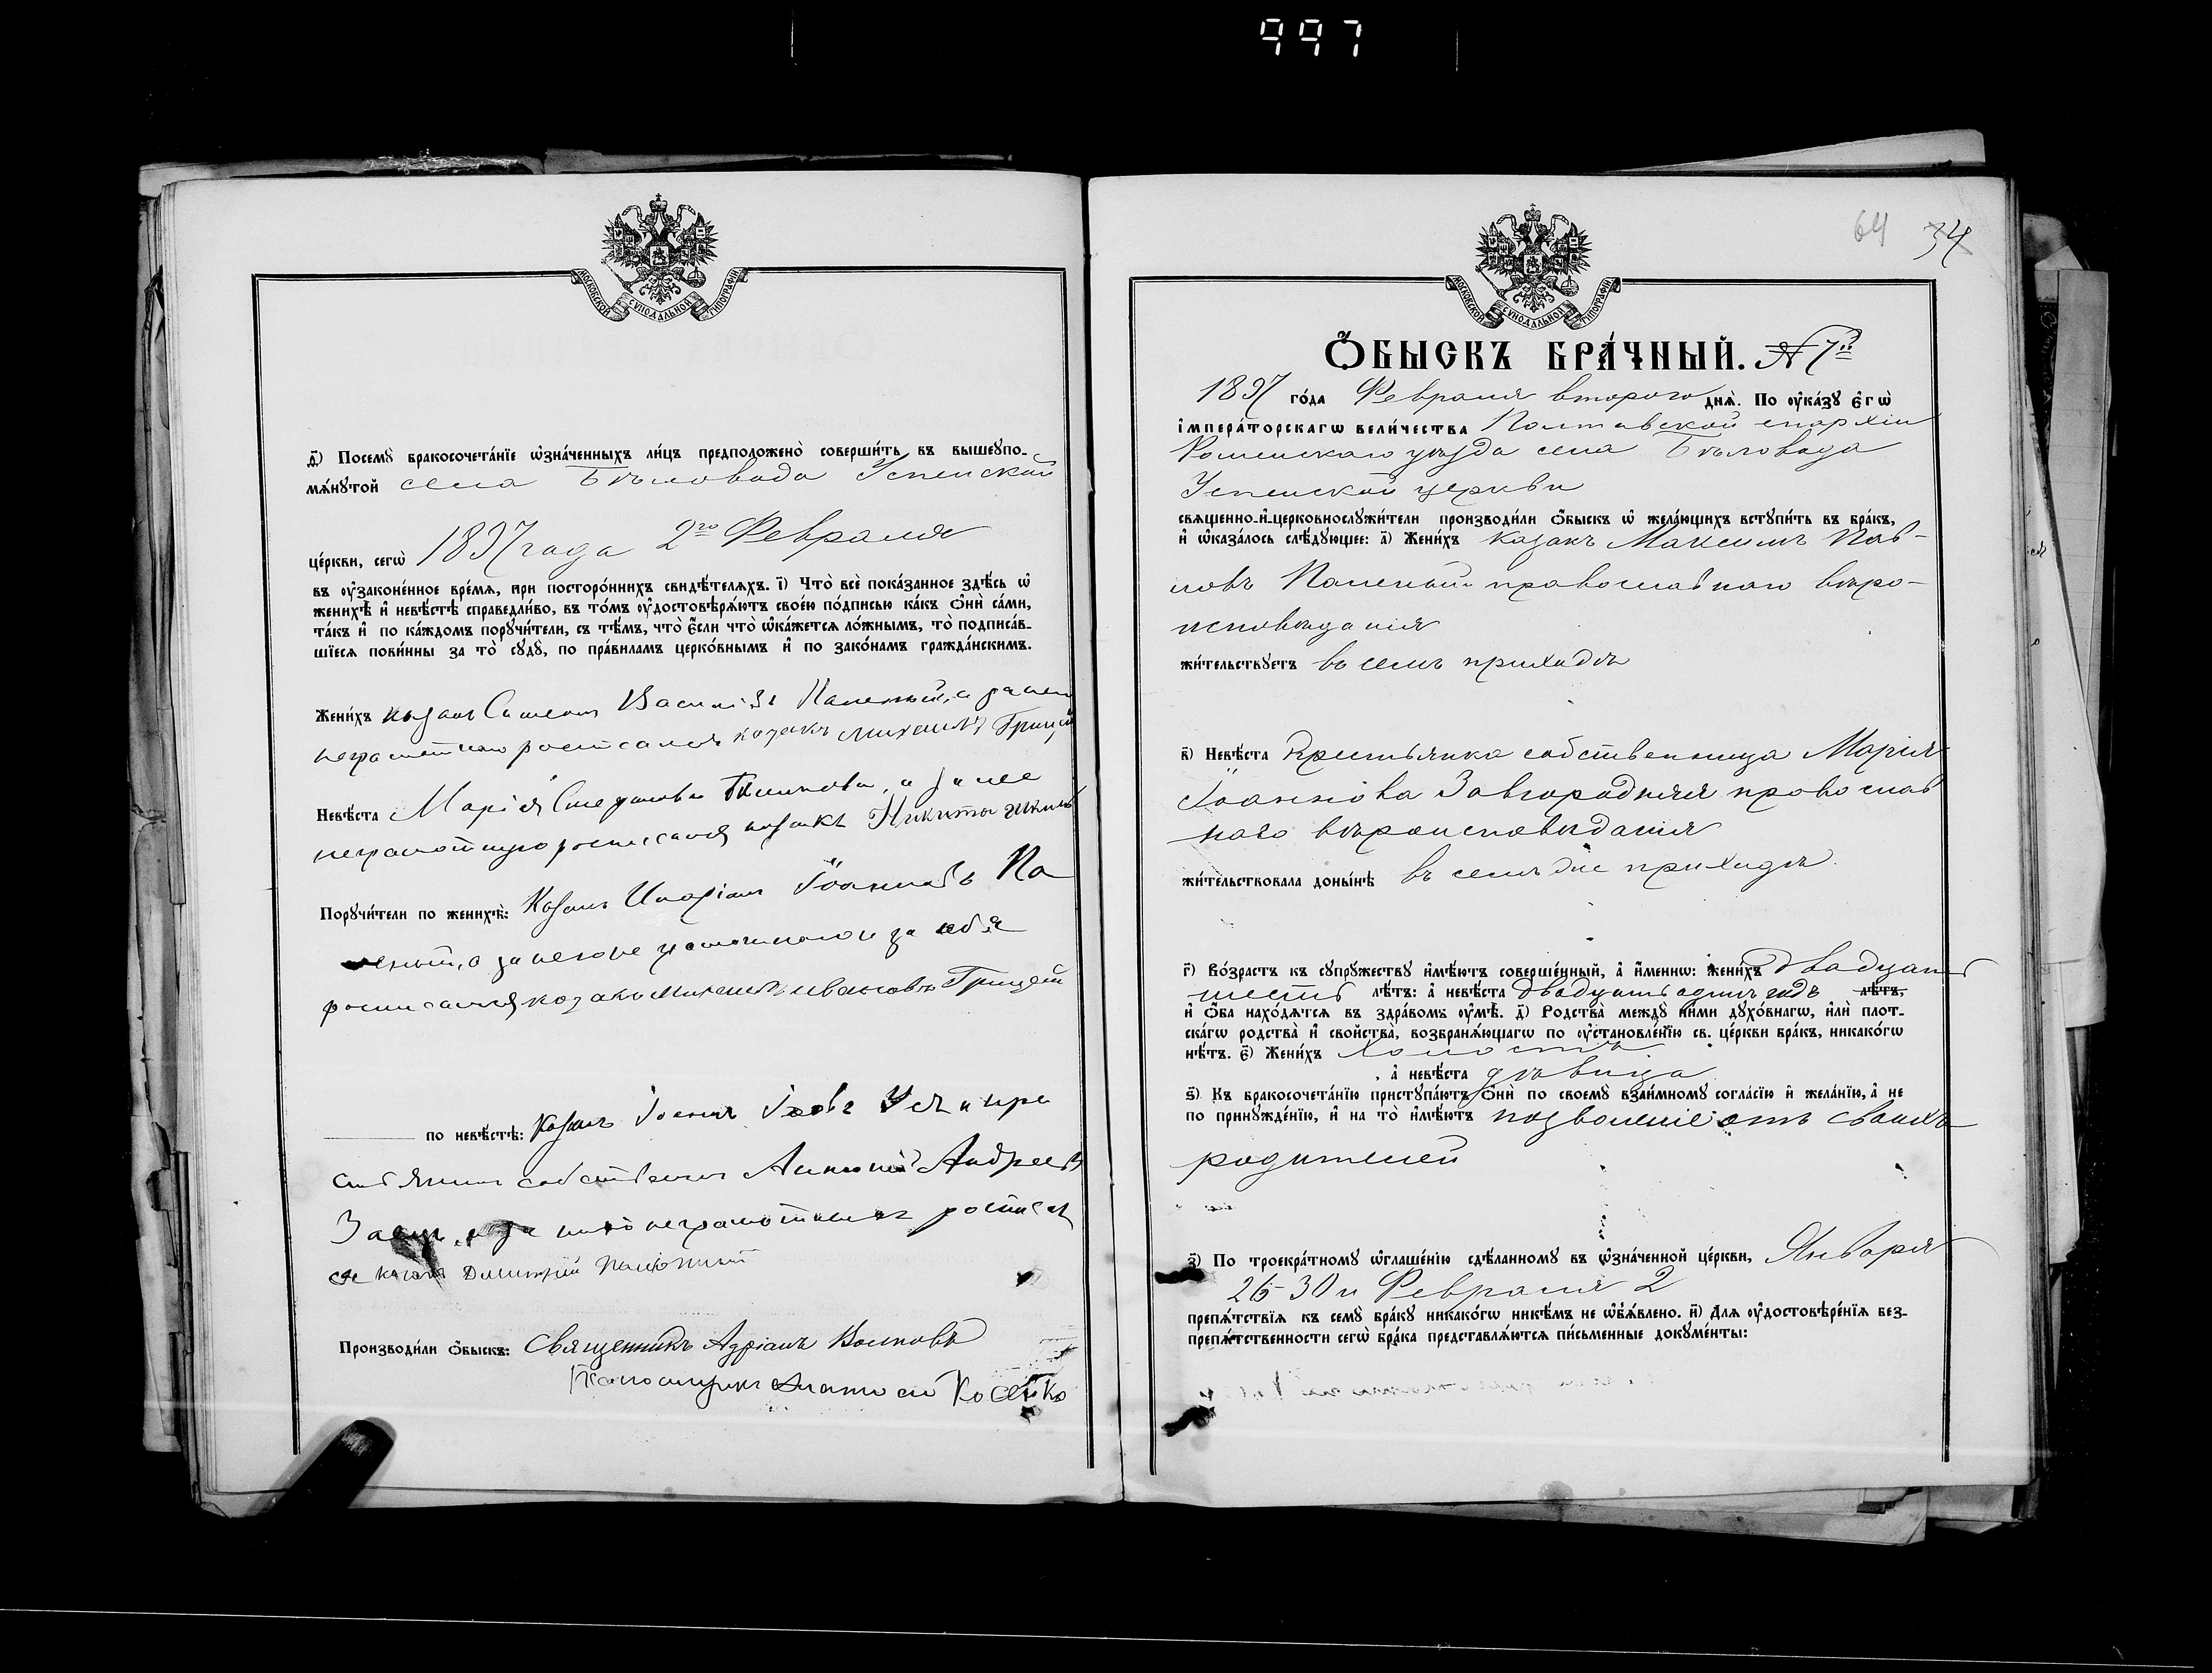 997
МОСКОВСКОЙ СѴНОДАЛЬНОЙ ТИПОГРАФІИ
ѳ҃) Посемꙋ̀ бракосочета́нїе ѡ҆зна́ченныхъ ли́цъ предположено̀ соверши́ть въ вышеупо-
мѧ́нутой села Бѣловода Успенской
це́ркви, сегѡ̀ 1897 года 2го Февраля
въ ᲂу҆законе́нное вре́мѧ, при посторо́ннихъ свидѣ́телѧхъ. і҃) Что̀ всѐ пока́занное здѣ́сь ѡ҆
женихѣ̀ и҆ невѣ́стѣ справедли́во, въ то́мъ ᲂу҆достовѣрѧ́ютъ свое́ю по́дписью ка́къ ѻ҆нѝ са́ми,
та́къ и҆ по ка́ждомъ порꙋчи́тели, съ тѣ́мъ, что̀ є҆́сли что̀ ѡ҆ка́жетсѧ ло́жнымъ, то̀ подписа́в-
шїесѧ пови́нны за то̀ сꙋдꙋ̀, по пра́виламъ церко́внымъ и҆ по зако́намъ гражда́нскимъ.
Жени́хъ козакъ Симеонъ Паленый, а за него
неграмотнаго росписался козакъ Михаилъ Грицай
Невѣ́ста Марія а за нее
неграмотную росписался козакъ Никита
Порꙋчи́тели по женихѣ̀: Козакъ Иларіонъ Іоанновъ Па
леный, а за него неграмотного и за себя
росписался козакъ Михаилъ Ивановъ Грицай
по невѣ́стѣ: Козакъ Іоаннъ и кре
стьянинъ собственникъ Андреевъ
Заецъ, а за неграмотныхъ росписал
ся козакъ Димитрій
Производи́ли ѻ҆́быскъ: Священникъ Адріанъ Волковъ
Псаломщикъ Косенко
64 34
МОСКОВСКОЙ СѴНОДАЛЬНОЙ ТИПОГРАФІИ
Ѻ҆́БЫСКЪ БРА́ЧНЫЙ. № 7й
1897 го́да Февраля второго днѧ̀. По ᲂу҆ка́зꙋ є҆гѡ̀
і҆мпера́торскагѡ вели́чества Полтавской епархіи
Роменскаго уѣзда села Бѣловода
Успенской церкви
свѧщенно-и҆-церковнослꙋжи́тели производи́ли ѻ҆́быскъ ѡ҆ жела́ющихъ встꙋпи́ть въ бра́къ,
и҆ ѡ҆каза́лось слѣ́дꙋющее: а҃) Жени́хъ козакъ Максимъ Пав-
ловъ Паленый православнаго вѣро-
исповѣданія
жи́тельствꙋетъ въ семъ приходѣ
в҃) Невѣ́ста Крестьянка собственница Марія
Іоаннова Завгородняя православ
наго вѣроисповѣданія
жи́тельствовала доны́нѣ въ семъ же приходѣ
г҃) Во́зрастъ къ сꙋпрꙋжествꙋ и҆мѣ́ютъ соверше́нный, а҆ и҆́меннѡ: жени́хъ двадцать
шесть лѣ́тъ: а҆ невѣ́ста двадцать одинъ годъ лѣ́тъ,
и҆ ѻ҆́ба нахо́дѧтсѧ въ здра́вомъ ᲂу҆мѣ̀. д҃) Родства̀ междꙋ̀ ни́ми дꙋхо́внагѡ, и҆лѝ плот-
ска́гѡ родства̀ и҆ сво́йства̀, возбранѧ́ющагѡ по ᲂу҆становле́нїю св. це́ркви бра́къ, никако́гѡ
нѣ́тъ. є҃) Жени́хъ холостъ
, а҆ невѣ́ста дѣвица
ѕ҃) Къ бракосочета́нїю пристꙋпа́ютъ ѻ҆нѝ по своемꙋ̀ взаи́мномꙋ согла́сїю и҆ жела́нїю, а҆ не
по принꙋжде́нїю, и҆ на то̀ и҆мѣ́ютъ позволеніе отъ своихъ
родителей
з҃) По троекра́тномꙋ ѡ҆глаше́нїю сдѣ́ланномꙋ въ ѡ҆зна́ченной це́ркви, Января
26-30 и Февраля 2
препѧ́тствїѧ къ семꙋ̀ бра́кꙋ никако́гѡ никѣ́мъ не ѡ҆б̾ѧ́влено. и҃) Длѧ ᲂу҆достовѣре́нїѧ без-
препѧ́тственности сегѡ̀ бра́ка представлѧ́ютсѧ пи́сьменные докꙋме́нты: